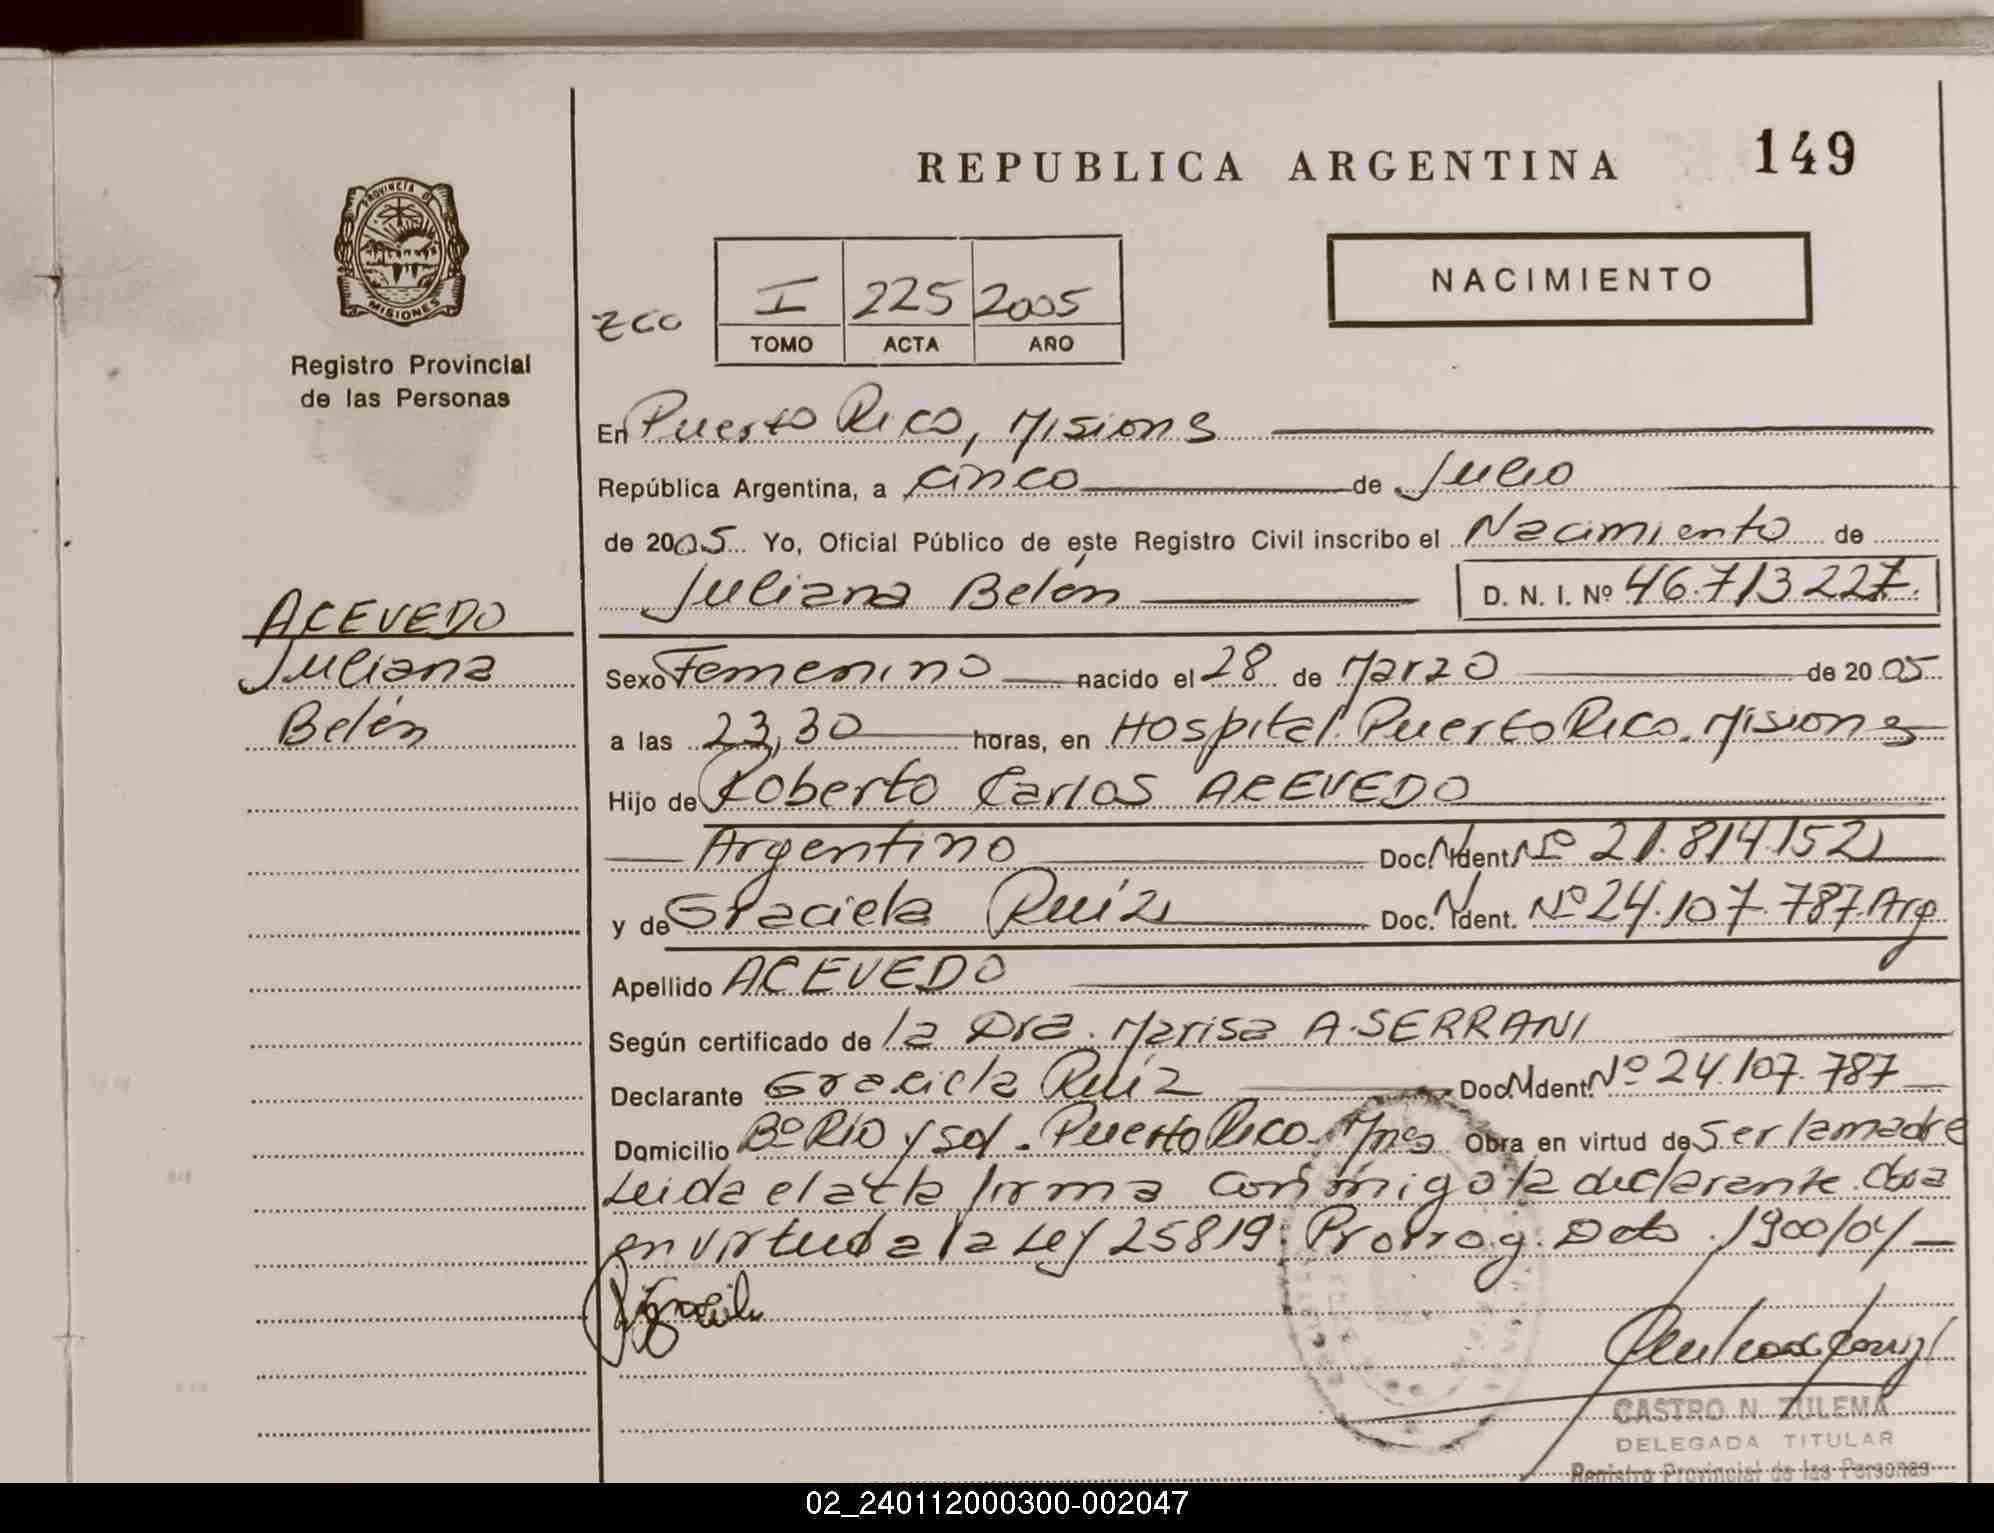 REPUBLICA ARGENTINA 149
PROVINCIA DE
MISIONES
Registro Provincial
de las Personas
NACIMIENTO
zcc
I 225 2005
TOMO ACTA AÑO
En Puerto Rico, Misiones
República Argentina, a cinco de Julio
de 2005 Yo, Oficial Público de este Registro Civil inscribo el Nacimiento de
Juliana Belén D. N. I. Nº 46.713227.
ACEVEDO
Juliana
Belén
Sexo Femenino nacido el 28 de Marzo de 2005
a las 23,30 horas, en Hospital Puerto Rico. Misiones
Hijo de Roberto Carlos ACEVEDO
Argentino Doc. N. Ident. Nº 21.814.152
y de Graciela Ruíz Doc. N. Ident. Nº 24.107.787. Arg
Apellido ACEVEDO
Según certificado de la Dra. Marisa A. SERRANI
Declarante Graciela Ruíz Doc. N. Ident. Nº 24.107.787
Domicilio Bº Río y sol. Puerto Rico. Mnes Obra en virtud de ser la madre
Leida el acta firma conmigo la declarante. Obra
en virtud a la Ley 25819. Prorrog. Dcto. 1900/04
CASTRO N. ZULEMA
DELEGADA TITULAR
Registro Provincial de las Personas
02_240112000300-002047